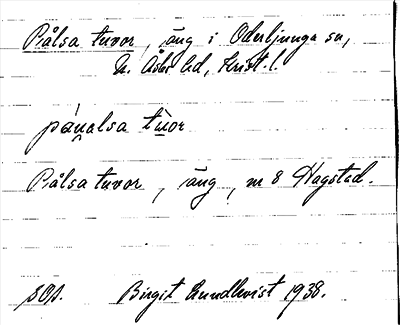 Pålsa tuvor, äng i Oderljunga sn,
N. Åsbo hd, Krist. l.
páu̯alsa tùor
Pålsa tuvor, äng, nr 8 Hagstad.
SOA. Birgit Lundkvist 1938.